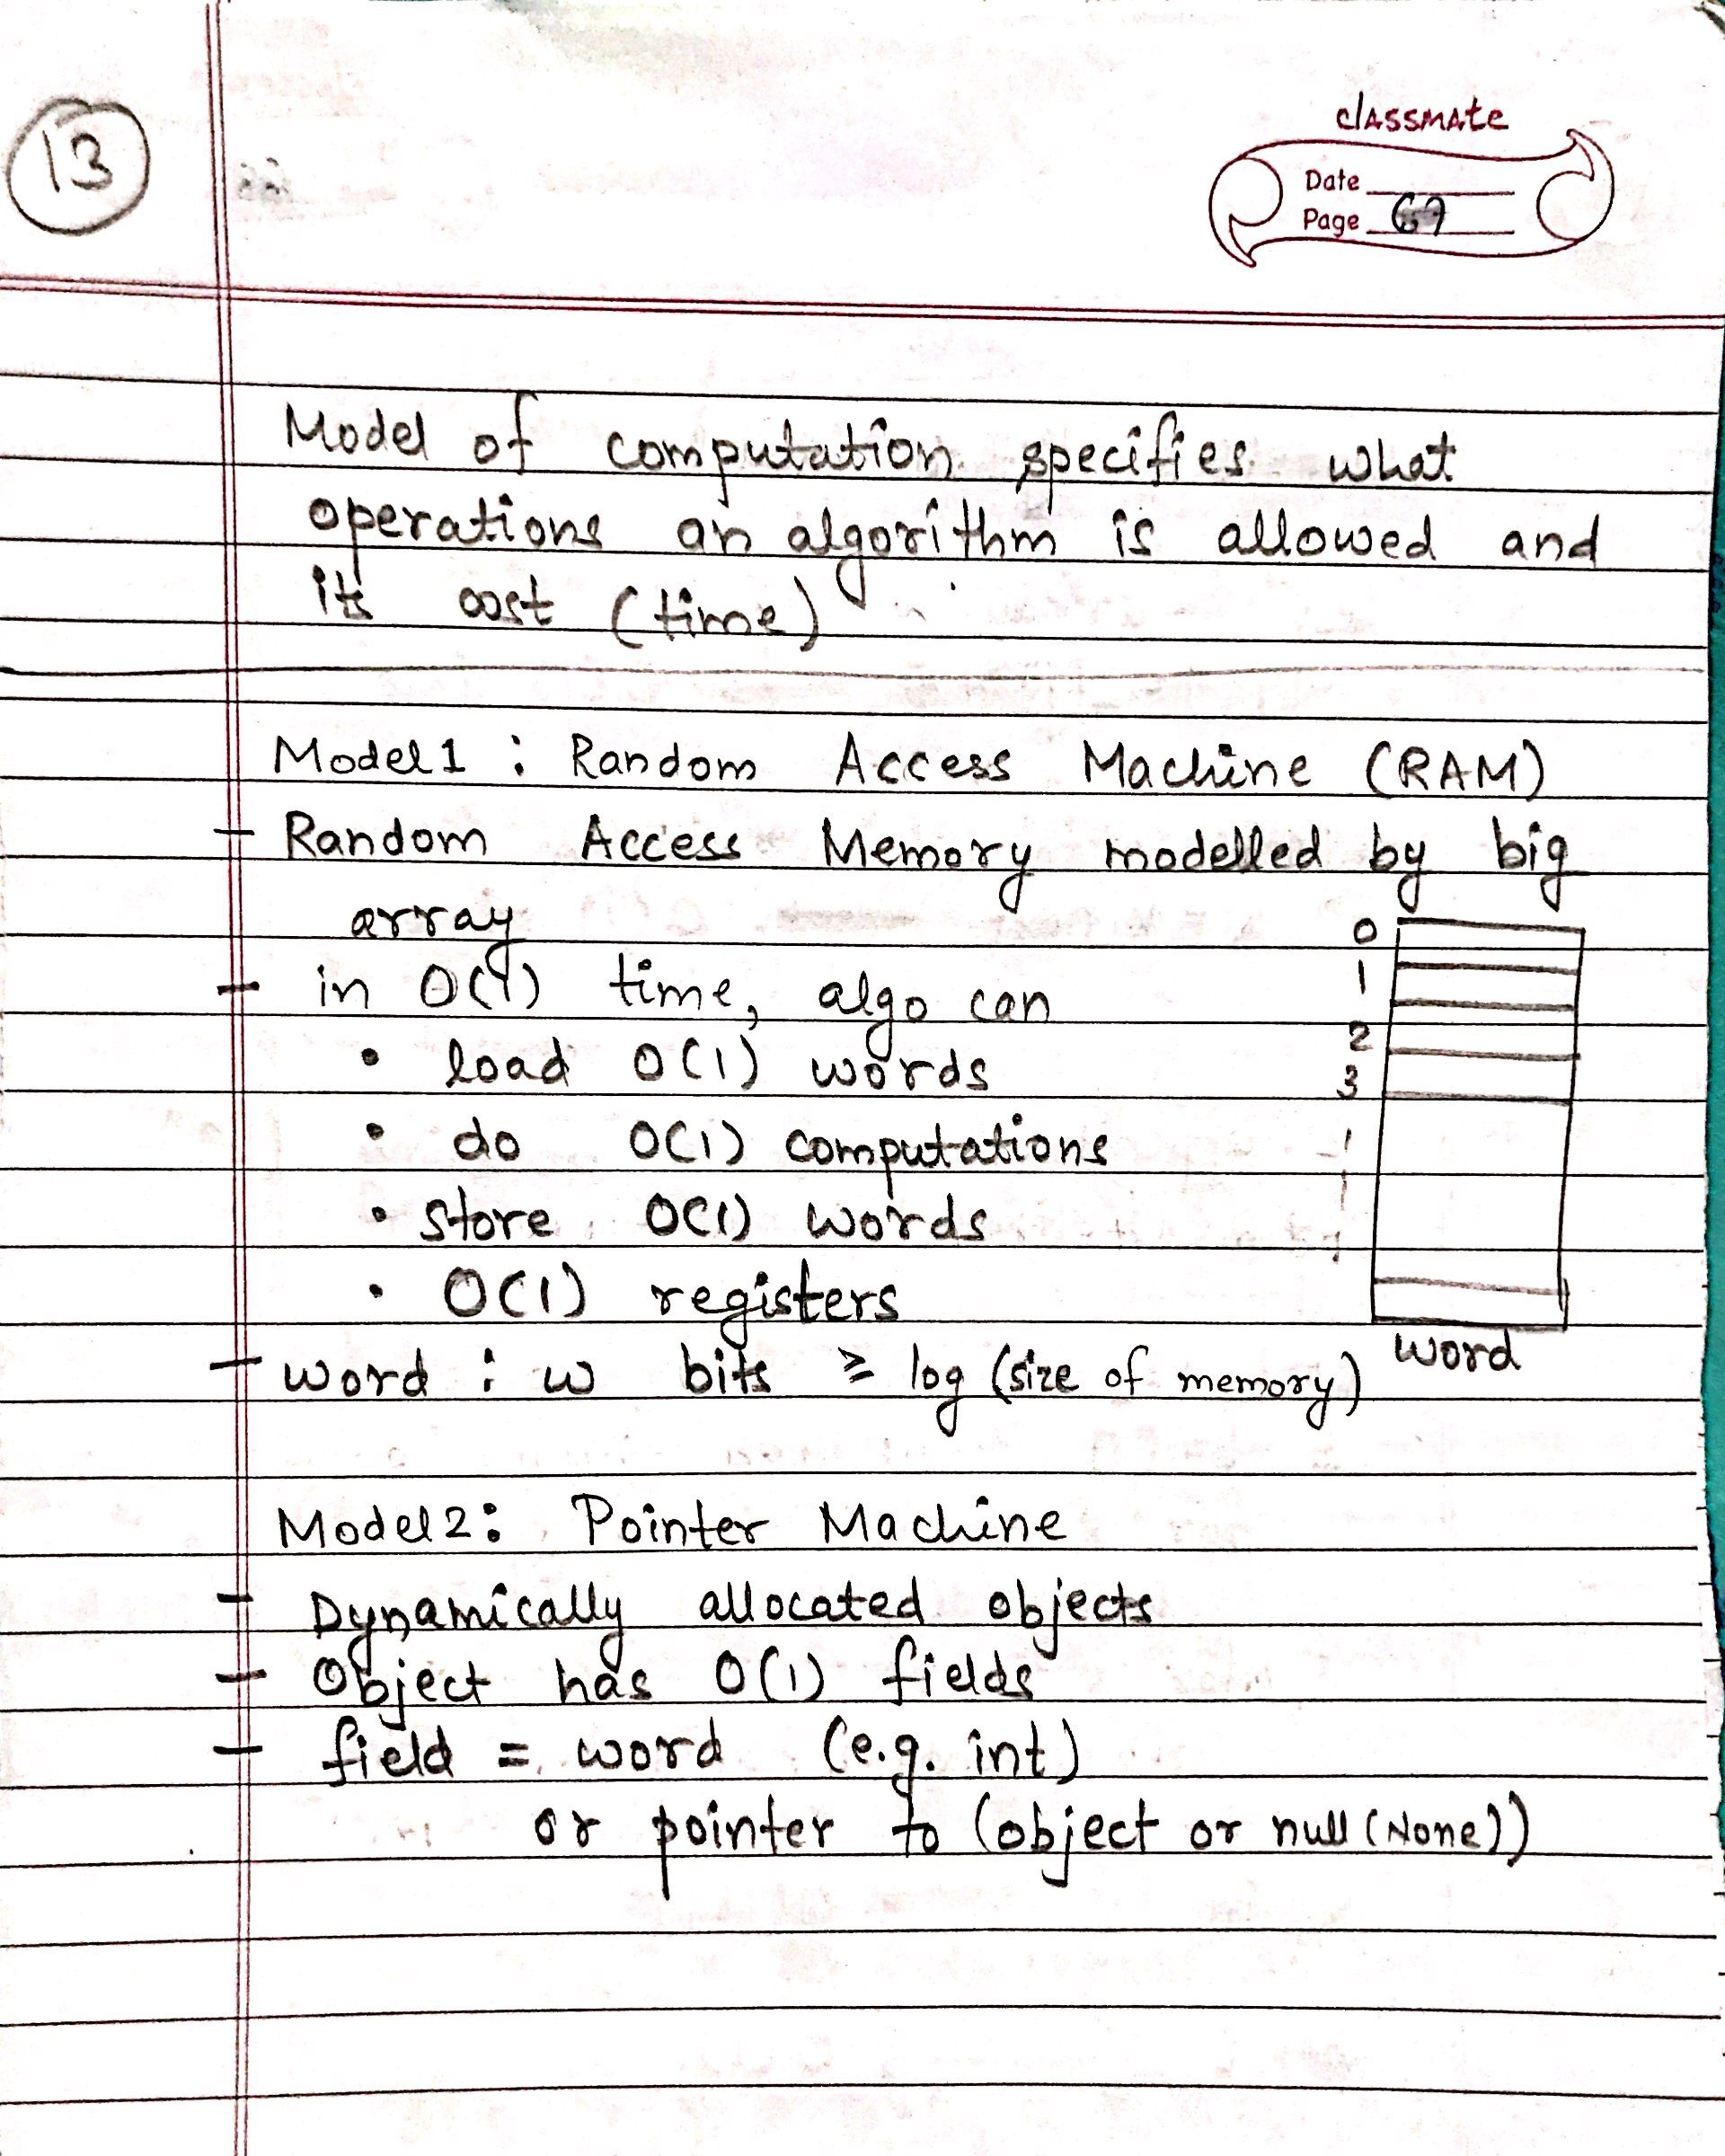 13
classmate
Date
Page 67
Model of computation specifies what
operations an algorithm is allowed and
its cost (time)
Model 1 : Random Access Machine (RAM)
- Random Access Memory modelled by big
array
- in O(1) time, algo can
• load O(1) words
• do O(1) computations
• store O(1) words
• O(1) registers
- word : w bits ≥ log (size of memory)
0
1
2
3
word
Model 2: Pointer Machine
- Dynamically allocated objects
- Object has O(1) fields
- field = word (e.g. int)
or pointer to (object or null (None))